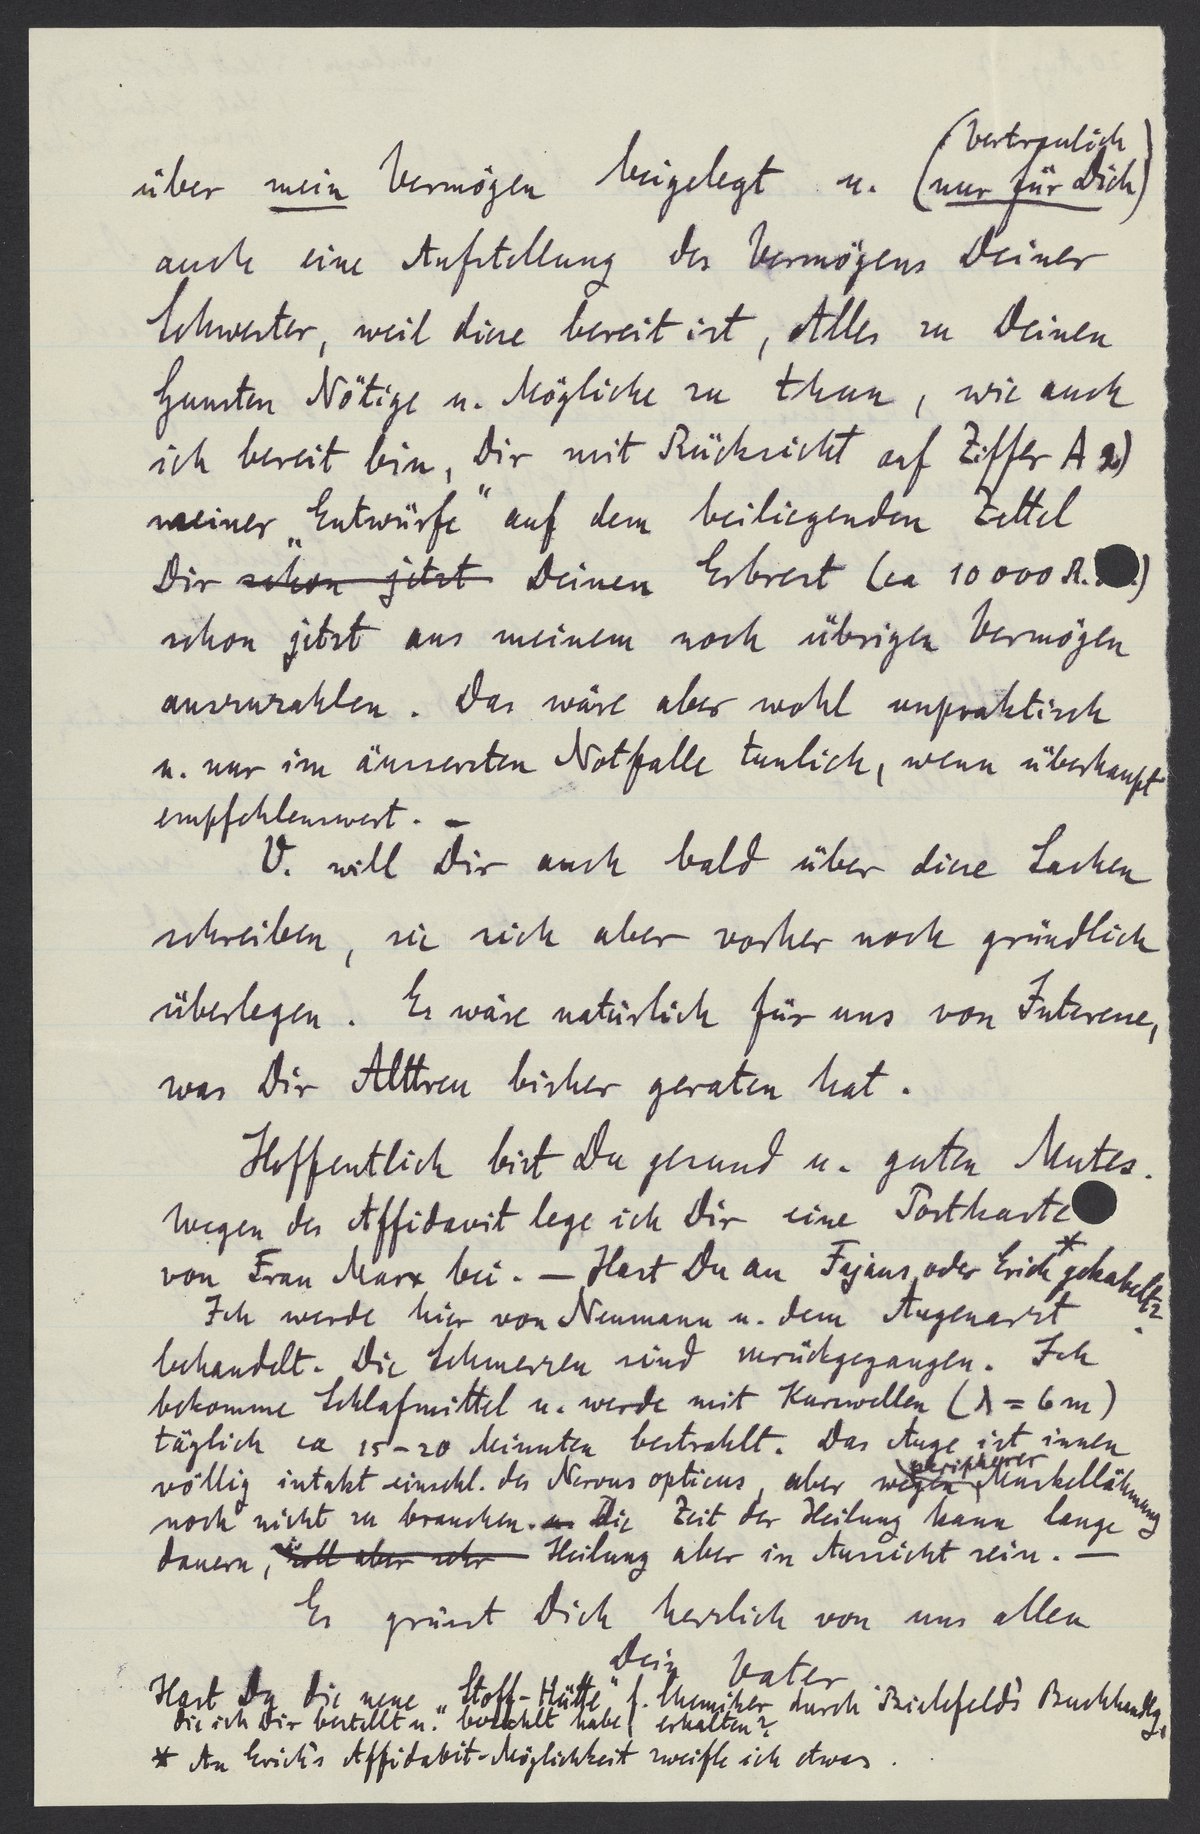 (Vertraulich
über mein Vermögen beigelegt u. (nur für Dich)
auch eine Aufstellung des Vermögens Deiner
Schwester, weil diese bereit ist, Alles zu Deinen
Gunsten Nötige u. Mögliche zu thun, wie auch
ich bereit bin, Dir mit Rücksicht auf Ziffer A 2)
meiner „Entwürfe" auf dem beiliegenden Zettel
Dir schon jetzt Deinen Erbrest (ca 10000 R. )
schon jetzt aus meinem noch übrigen Vermögen
auszuzahlen. Das wäre aber wohl unpraktisch
u. nur im äussersten Notfalle tunlich, wenn überhaupt
empfehlenswert. –
V. will Dir auch bald über diese Sachen
schreiben, sie sich aber vorher noch gründlich
überlegen. Es wäre natürlich für uns von Interesse,
was Dir Alttreu bisher geraten hat.
Hoffentlich bist Du gesund u. guten Mutes.
Wegen des Affidavit lege ich Dir eine Postkarte
von Frau Marx bei. – Hast Du an Fajans oder Erich* gekabelt?
Ich werde hier von Neumann u. dem Augenarzt
behandelt. Die Schmerzen sind zurückgegangen. Ich
bekomme Schlafmittel u. werde mit Kurzwellen (λ = 6 m)
täglich ca 15–20 Minuten bestrahlt. Das Auge ist innen
völlig intakt einschl. des Nervus opticus, aber wegen peripherer Muskellähmung
noch nicht zu brauchen. u. Die Zeit der Heilung kann lange
dauern, soll aber sehr Heilung aber in Aussicht sein. –
Es grüsst Dich herzlich von uns allen
Dein Vater
Hast Du die neue „Stoff-Hütte" f. Chemiker durch Bielefeld's Buchhandlg,
die ich Dir bestellt u. bezahlt habe, erhalten?
* An Erich's Affidavit-Möglichkeit zweifle ich etwas.